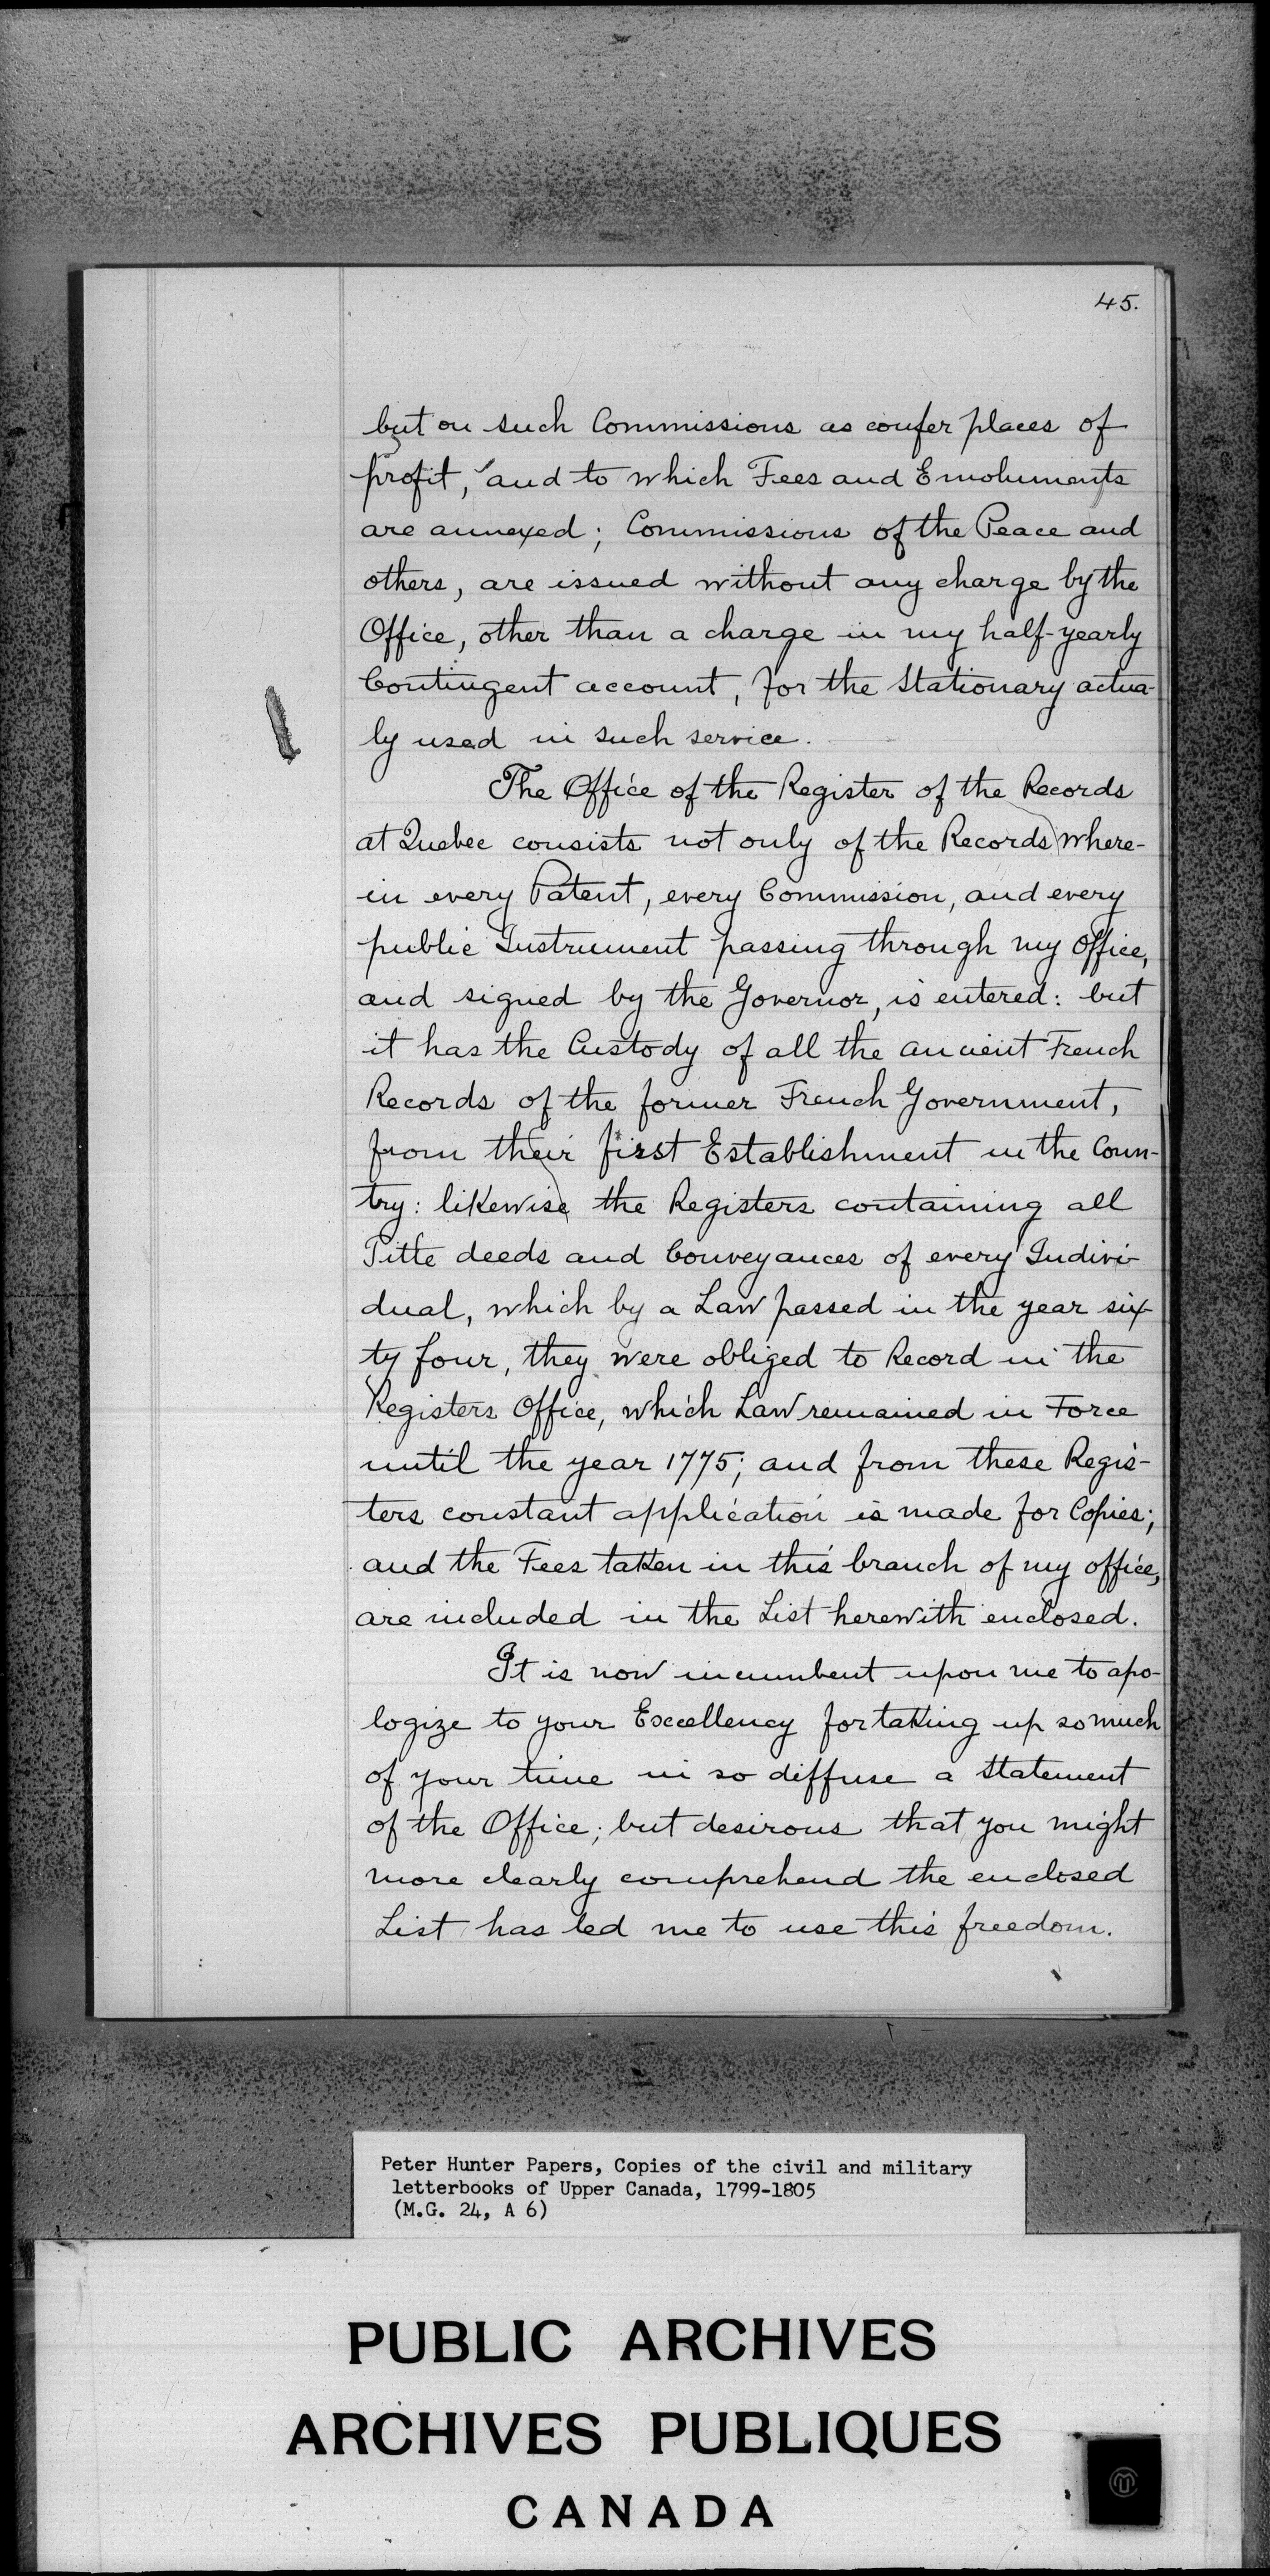 45.
but on such Commissions as confer places of
profit, and to which Fees and Emoluments
are annexed; Commissions of the Peace and
others, are issued without any charge by the
Office, other than a charge in my half-yearly
Contingent account, for the Stationary actua-
ly used in such service.
The Office of the Register of the Records
at Quebec consists not only of the Records where-
in every Patent, every Commission, and every
public Instrument passing through my Office,
and signed by the Governor, is entered: but
it has the Custody of all the ancient French
Records of the former French Government,
from their first Establishment in the Coun-
try: likewise the Registers containing all
Title deeds and Conveyances of every Indivi-
dual, which by a Law passed in the year six-
ty four, they were obliged to Record in the
Registers Office, which Law remained in Force
until the year 1775; and from these Regis-
ters constant application is made for Copies;
and the Fees taken in this branch of my office,
are included in the List herewith enclosed.
It is now incumbent upon me to apo-
logize to your Excellency for taking up so much
of your time in so diffuse a Statement
of the Office; but desirous that you might
more clearly comprehend the enclosed
List has led me to use this freedom.
Peter Hunter Papers, Copies of the civil and military
letterbooks of Upper Canada, 1799-1805
(M.G. 24, A 6)
PUBLIC ARCHIVES
ARCHIVES PUBLIQUES
CANADA